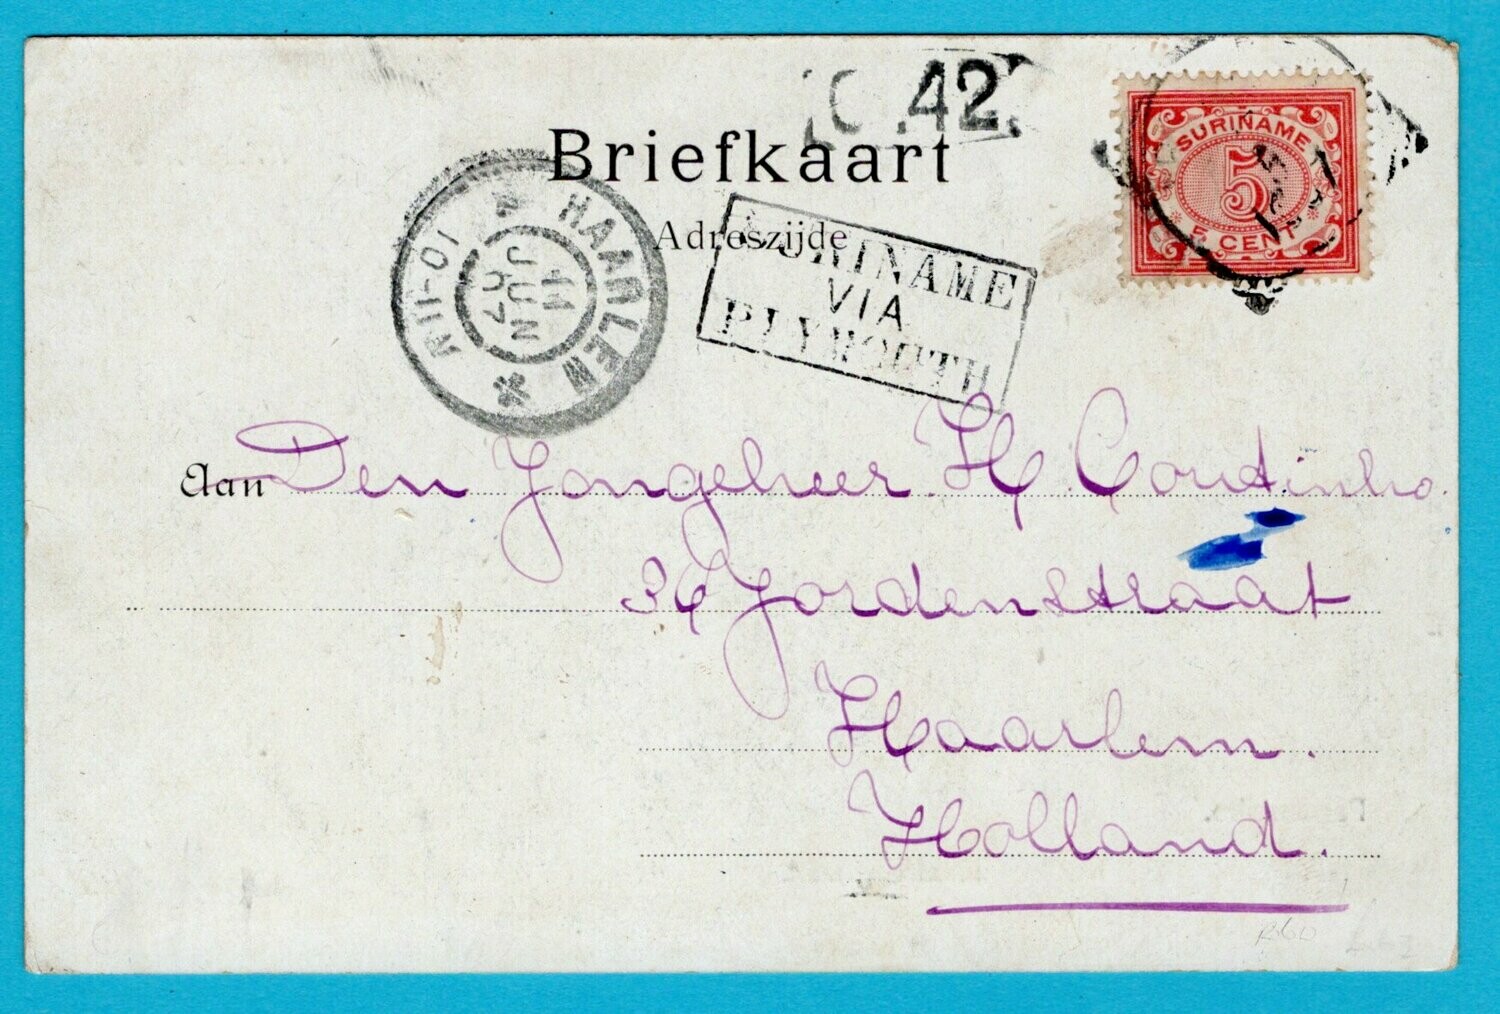 42
Briefkaart
SURINAME
5
5 CENT
Adreszijde
SURINAME
VIA
PLYMOUTH
HAARLEM
11
JUN
07
10-11V
Aan Den Jongeheer H Coutinho.
36 Jordenstraat
Haarlem.
Holland.
R60